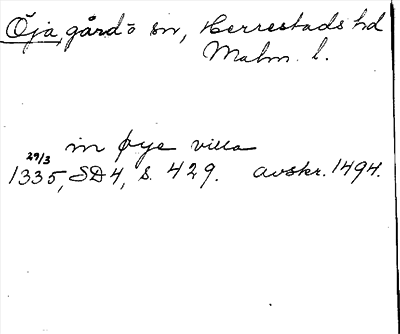 Öja, gård ö sn, Herrestads hd
Malm. l.
in øye villa
29/3
1335, SD 4, s. 429. avskr. 1494.